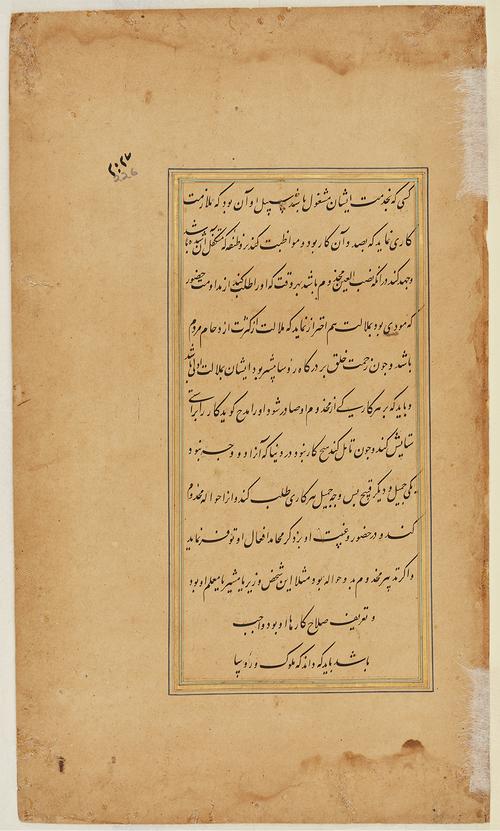 ۲۰۲۷
226
کسی که بخدمت ایشان مشغول باشد سبیل او آن بود که ملازمت
کاری نماید که بصدد آن کار بود و مواظبت کند بر وظیفه که متکفل آن شده باشد
وجهد کند در آنکه نصب العین مخدوم باشد بهر وقت که او را طلب کنند و از مداومت حضور
که مودی بود بملالت هم احتراز نماید که ملالت از کثرت ازدحام مردم
باشد و چون زحمت خلق بر درگاه روسا بیشتر بود ایشان بملالت اولی باشد
و باید که بر هر کاری که از مخدوم او صادر شود او را مدح گوید کار را براستی
ستایش کند و چون تامل کند هیچ کار نبود در دنیا که آنرا دو وجه نبود
یکی جمیل و دیگر قبیح پس وجه جمیل هر کاری طلب کند و از احواله مخدوم
کند و در حضور و غیبت او بر ذکر محامد افعال او توفر نماید
و اگر تدبیر مخدوم بدو حواله بود مثلا این شخص وزیر یا مشیر یا معلم او بود
و تعریف صلاح کارها او بود واجب
باشد باید که داند که ملوک و روسا